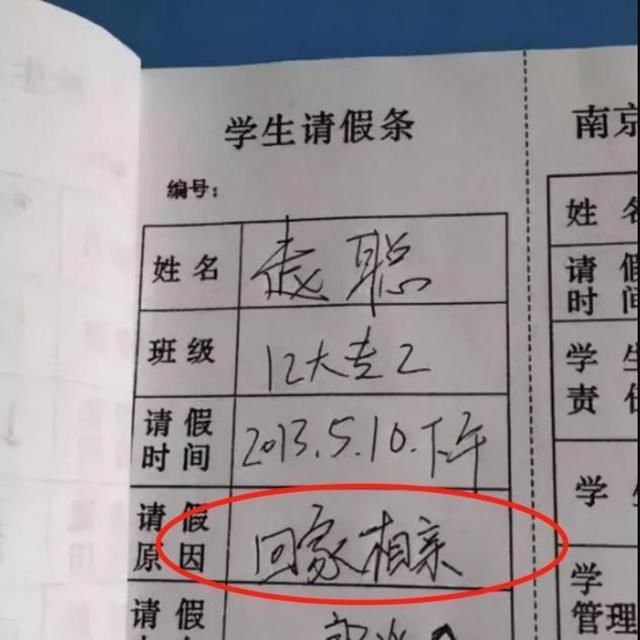 学生请假条
编号:
姓 名
聪
班 级
12大专2
请 假
时 间
2013.5.10.下午
请 假
原 因
回家相亲
请 假
南京
姓 名
请 假
时 间
学 生
责 任
学 生
学
管理